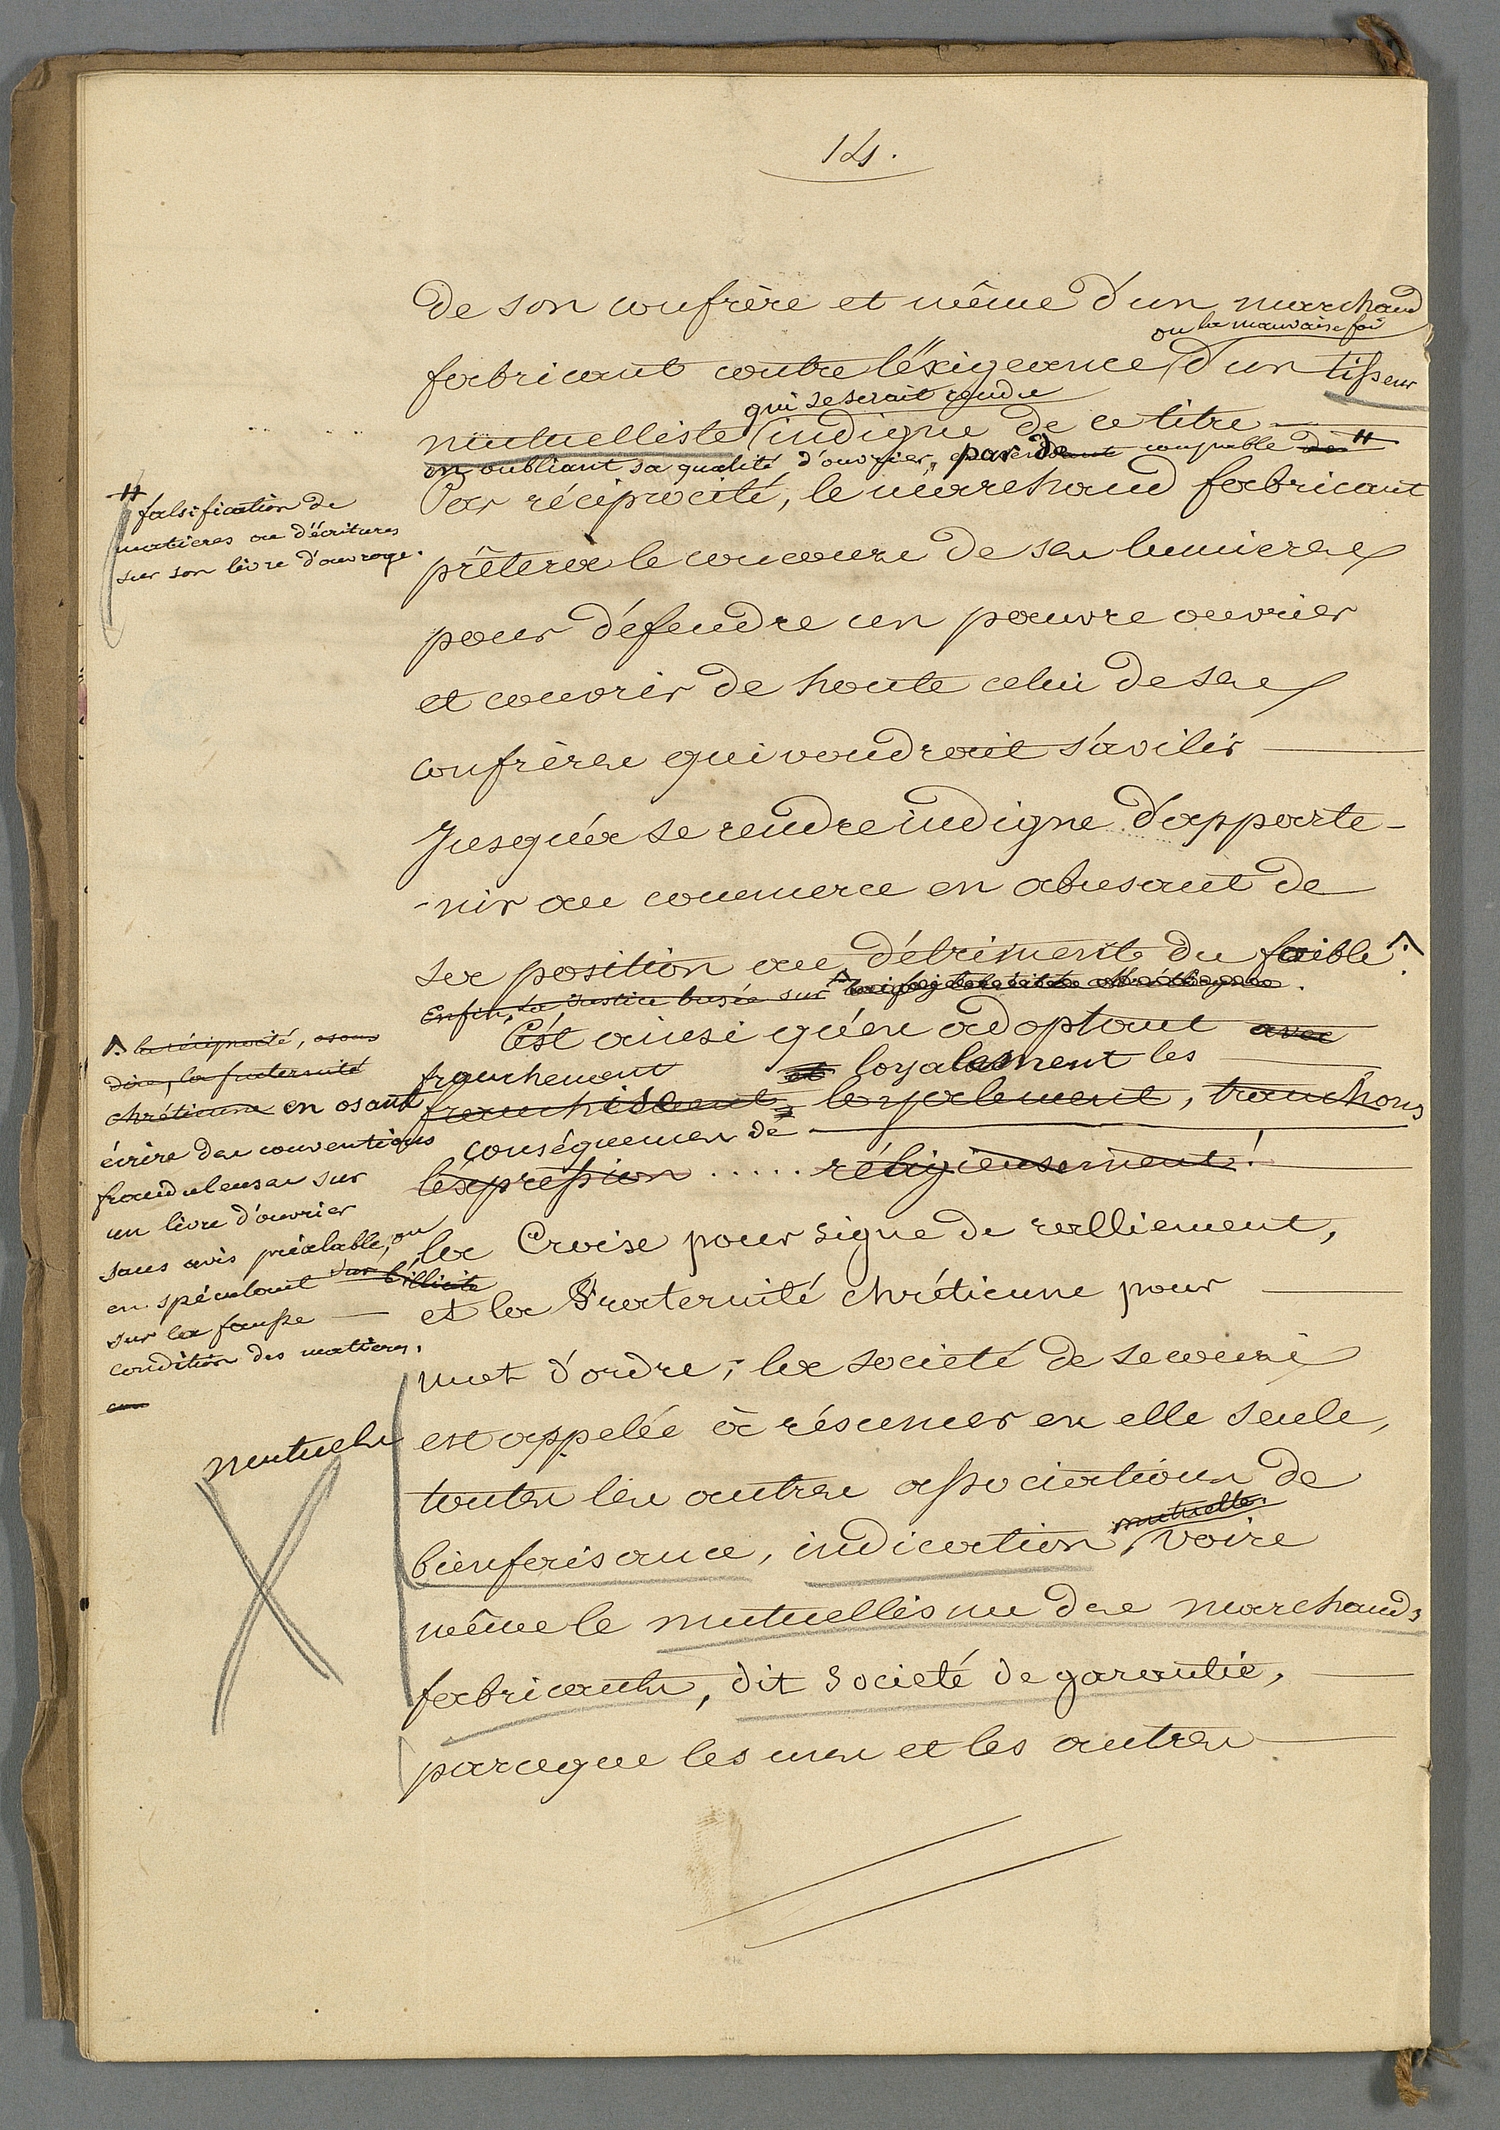 14.
de son confrère et même d'un marchand
ou la mauvaise foi
fabricant contre l'éxigeance d'un tisseur
qui se serait rendu
mutuelliste indigne de ce titre
en oubliant sa qualité d'ouvrier, par coupable de #
Par réciprocité, le marchand fabricant
prêtera le concours de ses lumieres
pour défendre un pauvre ouvrier
et couvrir de honte celui de ses
confrères qui voudrait s'avilir
Jusqu'à se rendre indigne d'apparte-
-nir au commerce en abusant de
sa position au détriment du faible ^.
Enfin, la Justice basée sur
C'ést ainsi qu'en adoptant avec
franchement et loyalement les
franchement, loyalement, tranchons
conséquences de
l'éxpression ..... réligieusement!
la Croix pour signe de ralliement,
et la Fraternité chrétienne pour
mot d'ordre, la societé de secours
est appelée à résumer en elle seule,
toutes les autres associations de
mutuelle.
bienfaisance, indication, voire
même le mutuellisme des marchands
fabricants, dit societé de garantie,
parceque les unes et les autres
# falsification de
matieres ou d'écritures
sur son livre d'ouvrage.
^. la réciprocité, osons
dire, la fraternité
chrétienne en osant
écrire des conventions
frauduleuses sur
un livre d'ouvrier
sans avis préalable, ou
en spéculant sur l'illicite
sur la fausse
condition des matieres.
mutuels